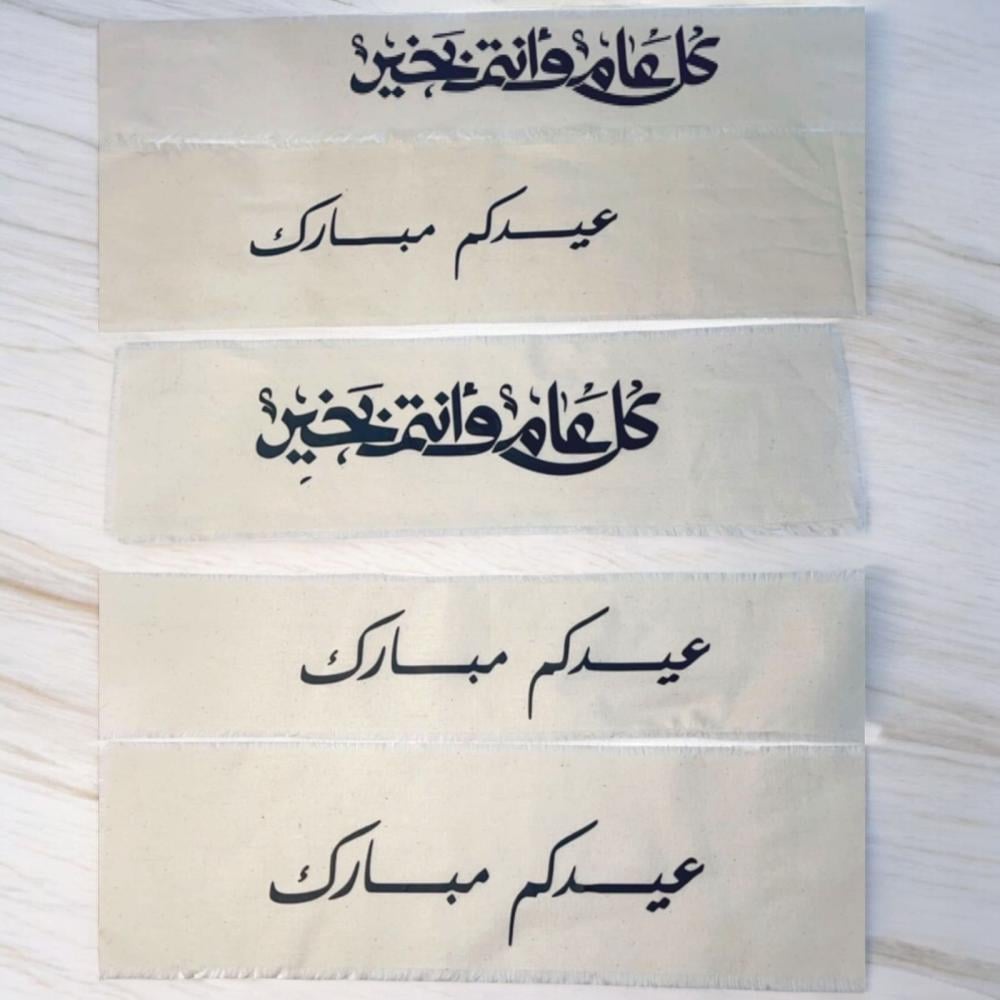 كل عام وأنتم بخير
عيدكم مبارك
كل عام وأنتم بخير
عيدكم مبارك
عيدكم مبارك